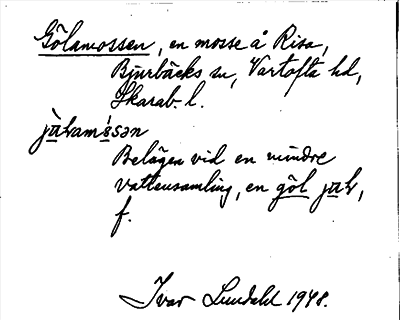 Gölamossen, en mosse å Risa,
Bjurbäcks sn, Vartofta hd,
Skarab. l.
Belägen vid en mindre
vattensamling, en göl
f.
Ivar Lundahl 1948.